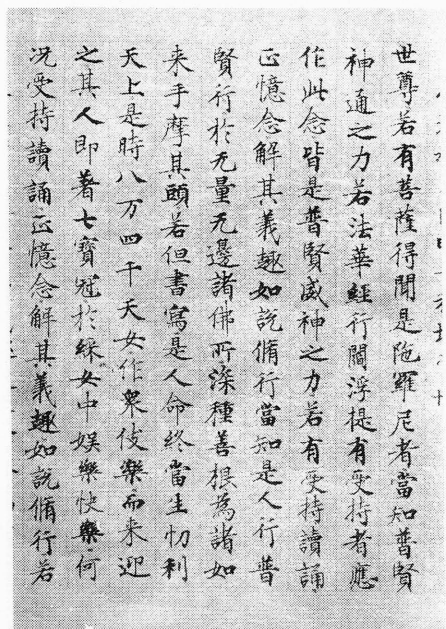 世尊若有菩薩得聞是陁羅尼者當知普賢
神通之力若法華經行閻浮提有受持者應
作此念皆是普賢威神之力若有受持讀誦
正憶念解其義趣如說脩行當知是人行普
賢行於无量无邊諸佛所深種善根為諸如
来手摩其頭若但書寫是人命終當生忉利
天上是時八万四千天女作衆伎樂而来迎
之其人即著七寶冠於婇女中娯樂快樂何
況受持讀誦正憶念解其義趣如說脩行若